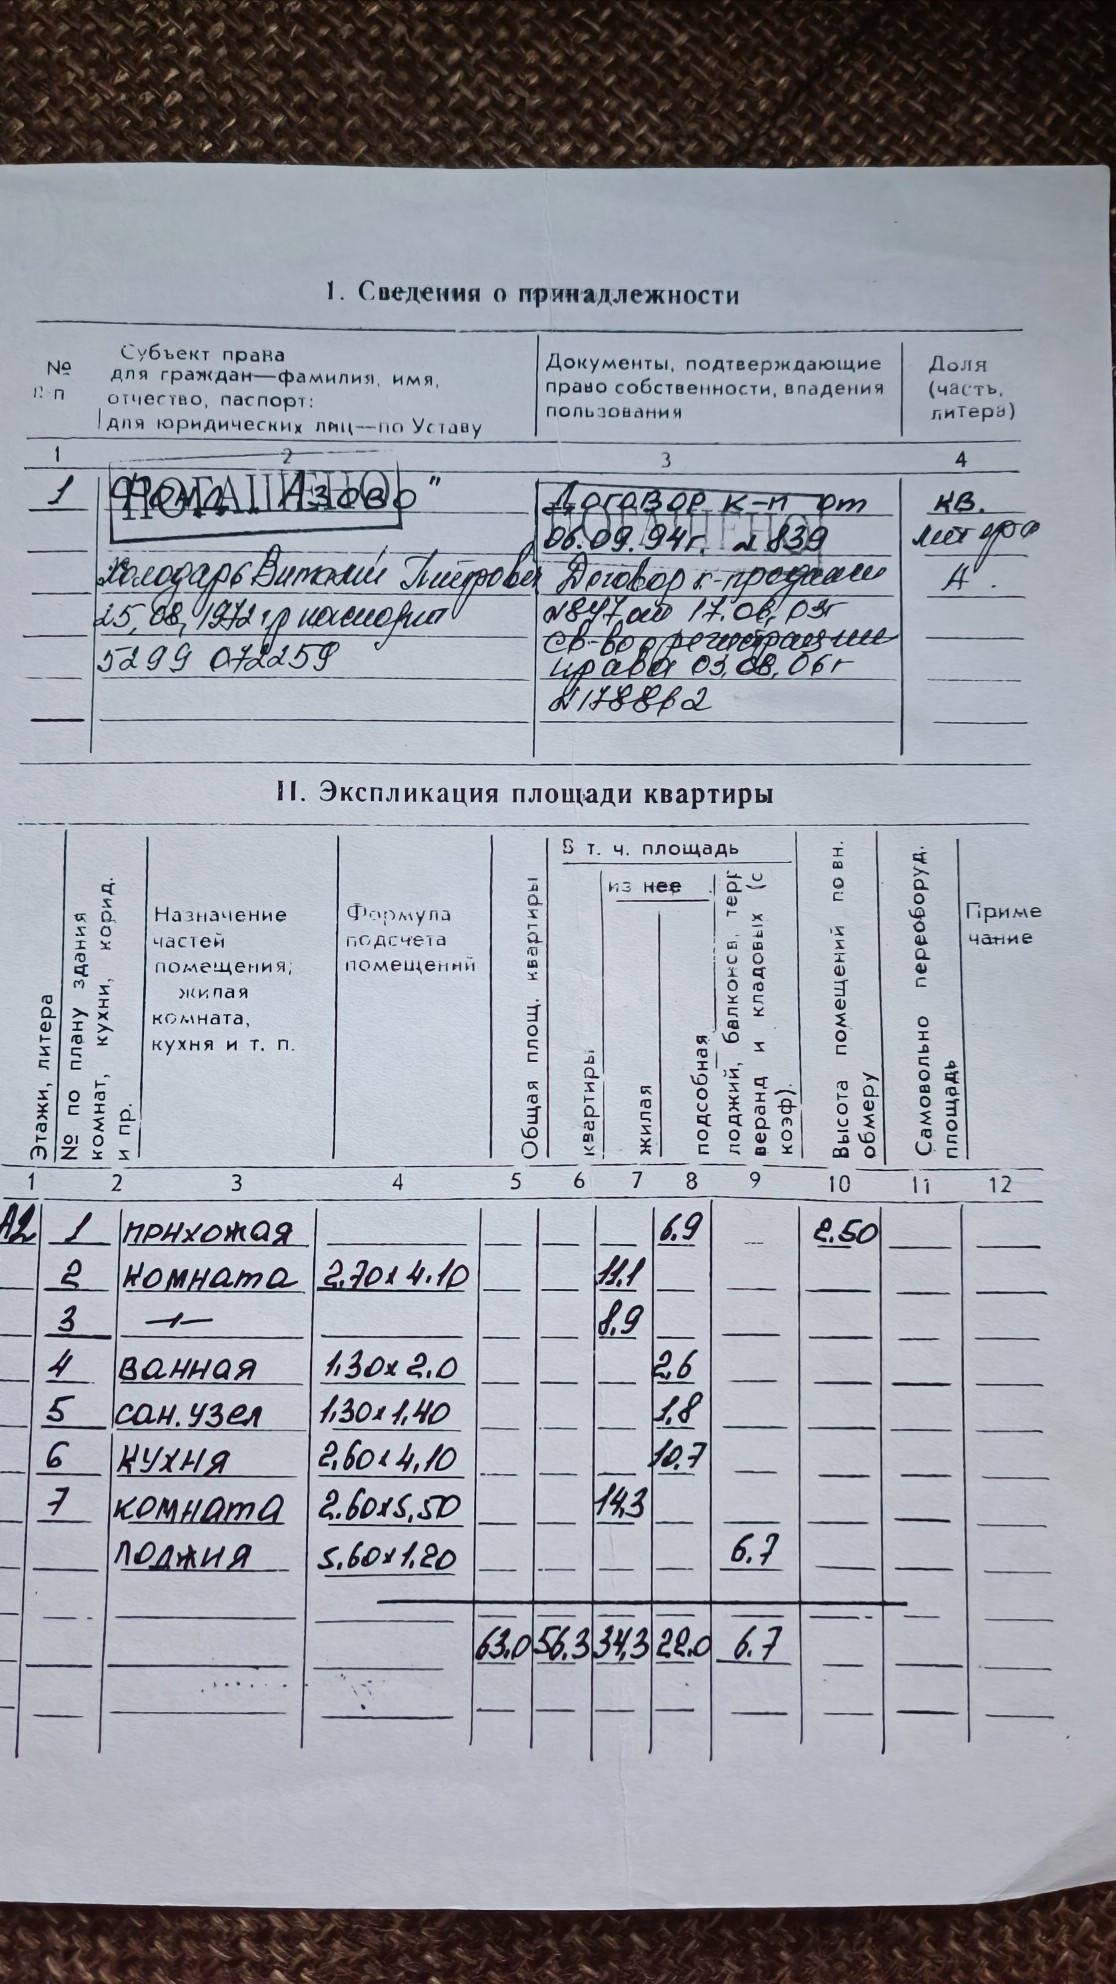 I. Сведения о принадлежности
№ п-п
Субъект права
для граждан—фамилия, имя,
отчество, паспорт:
для юридических лиц—по Уставу
Документы, подтверждающие
право собственности, владения
пользования
Доля
(часть,
литера)
1 2 3 4
ПОГАШЕНО
1 Азовр" Договор к-п от кв.
ПОГАШЕНО
06.09.94г. №839 литера
Холодарь Виталий Петрович Договор к-продажи А.
25,08,1972г.р паспорт №847,от 17.06,03г
св-во о регистрации
5299 072259 права 03,08,06г
№178862
II. Экспликация площади квартиры
Этажи, литера
№ по плану здания
комнат, кухни, корид.
и пр.
Назначение
частей
помещения;
жилая
комната,
кухня и т. п.
Формула
подсчета
помещений
Общая площ. квартиры
В т. ч. площадь
квартиры
из нее
жилая
подсобная
лоджий, балконов, терр
веранд и кладовых (с
коэф).
Высота помещений по вн.
обмеру
Самовольно переоборуд.
площадь
Приме
чание
1 2 3 4 5 6 7 8 9 10 11 12
А2 1 прихожая 6.9 2.50
2 комната 2.70х4.10 11.1
3 -//- 8.9
4 ванная 1.30х2.0 2,6
5 сан.узел 1,30х1,40 1,8
6 кухня 2,60х4,10 10.7
7 комната 2.60х5,50 14,3
лоджия 5.60х1.20 6.7
63.0 56.3 34,3 22.0 6.7